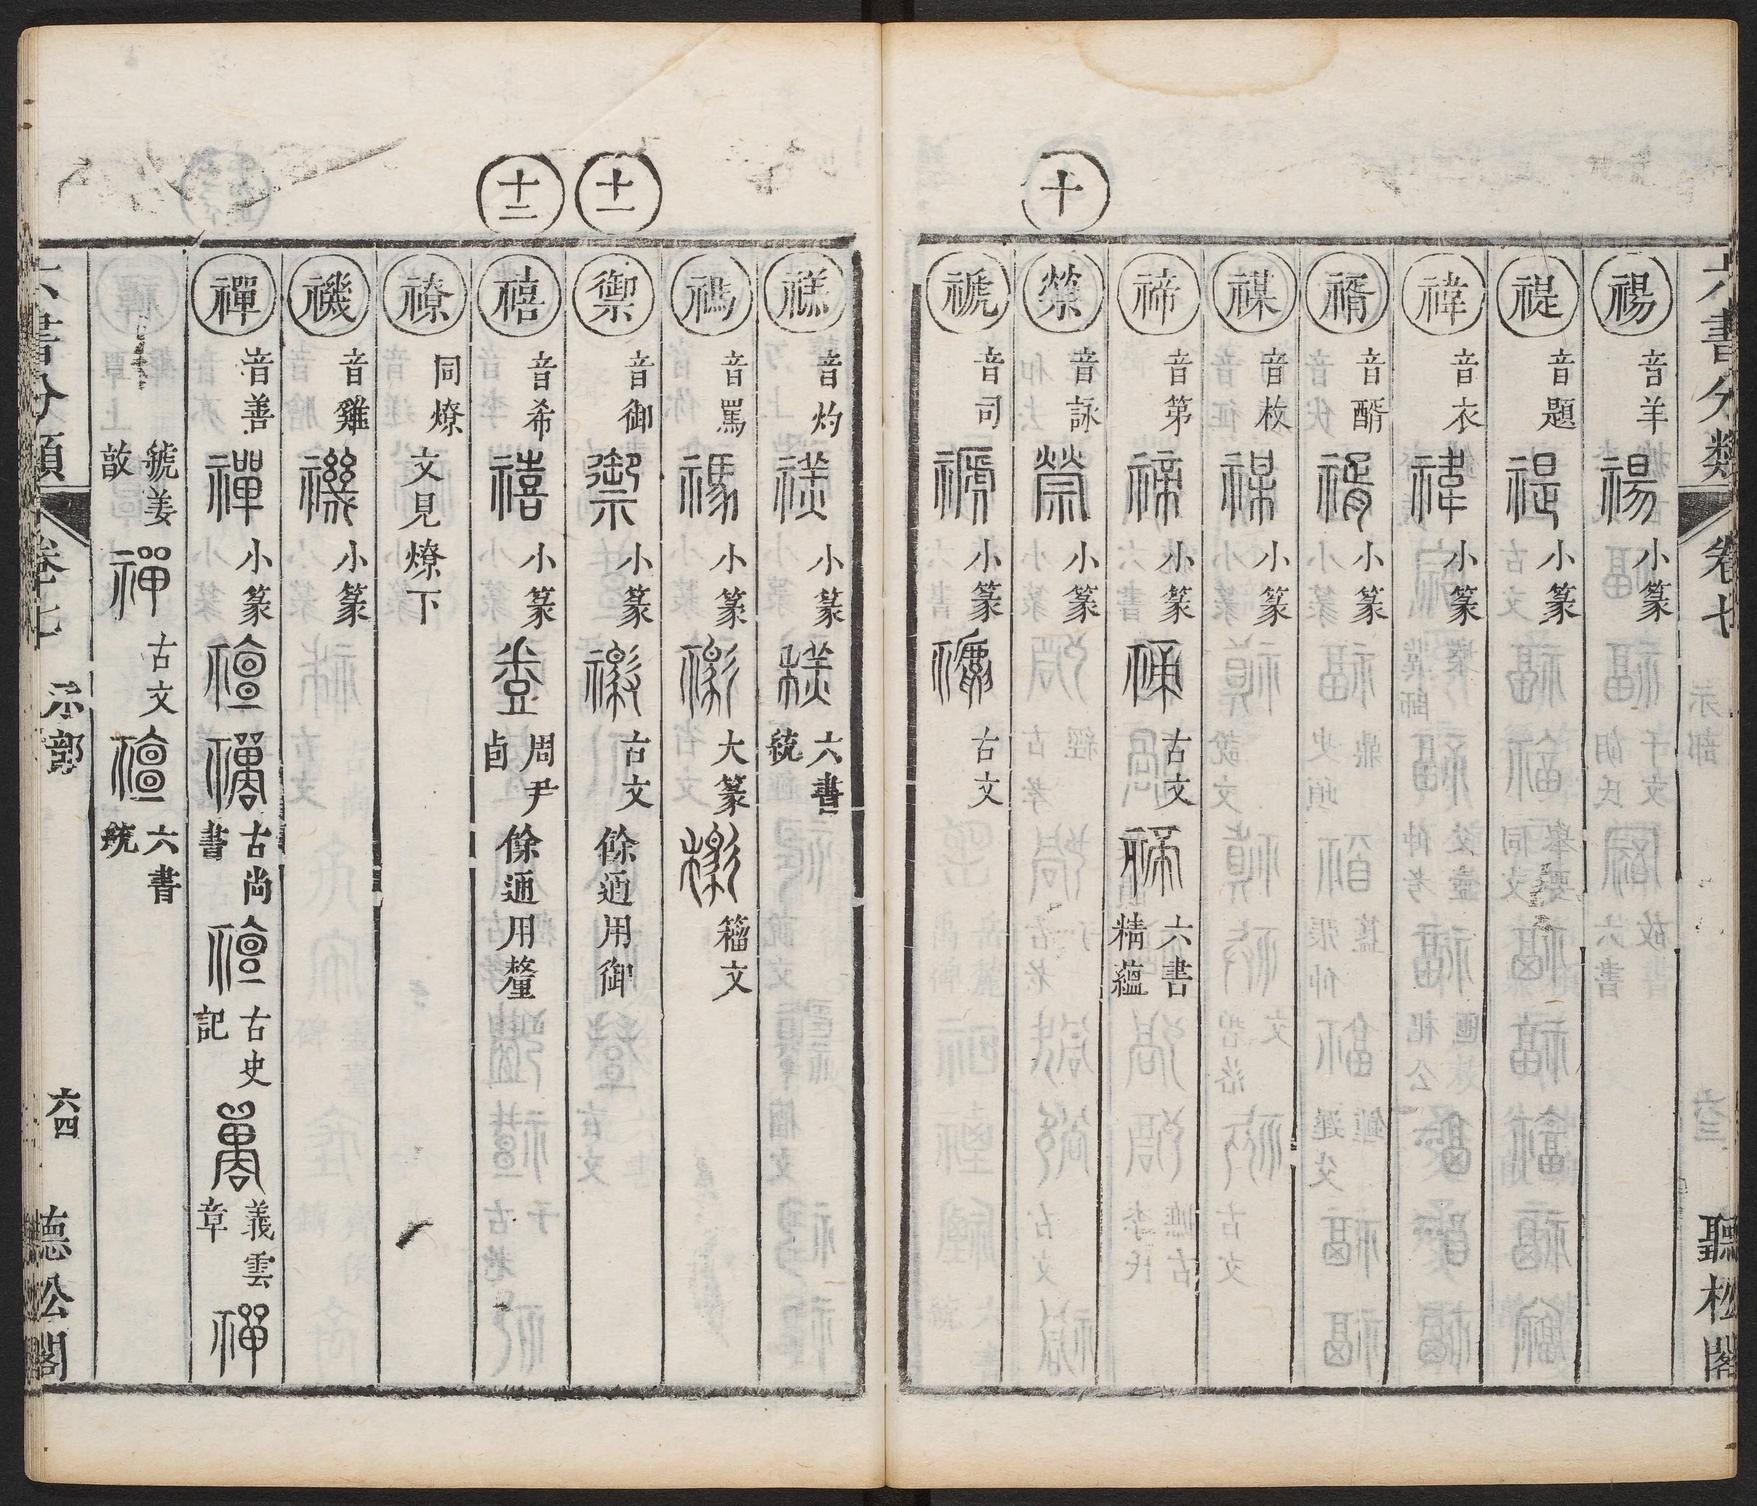 六書分類 卷七 聽松閣
禓 音羊 小篆
禔 音題 小篆
禕 音衣 小篆
䙏 音醑 小篆
禖 音枚 小篆
十
禘 音第 小篆 古文 六書精蘊
禜 音詠 小篆
禠 音司 小篆 古文
禚 音灼 小篆 六書統
禡 音罵 小篆 大篆 籀文
十一
禦 音御 小篆 古文 餘通用御
十二
禧 音希 小篆 周尹卣 餘通用釐
同燎 文見燎下
禨 音雞 小篆
禪 音善 小篆 古尚書 古史記 義雲章
虢姜敲 古文 六書統
六書分類 卷七 示部 六四 聽松閣